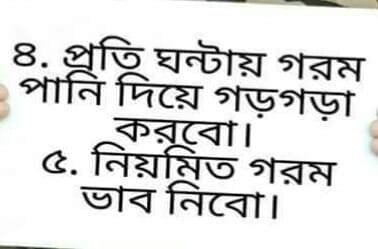 ৪. প্রতি ঘন্টায় গরম
পানি দিয়ে গড়গড়া
করবো।
৫. নিয়মিত গরম
ভাব নিবো।